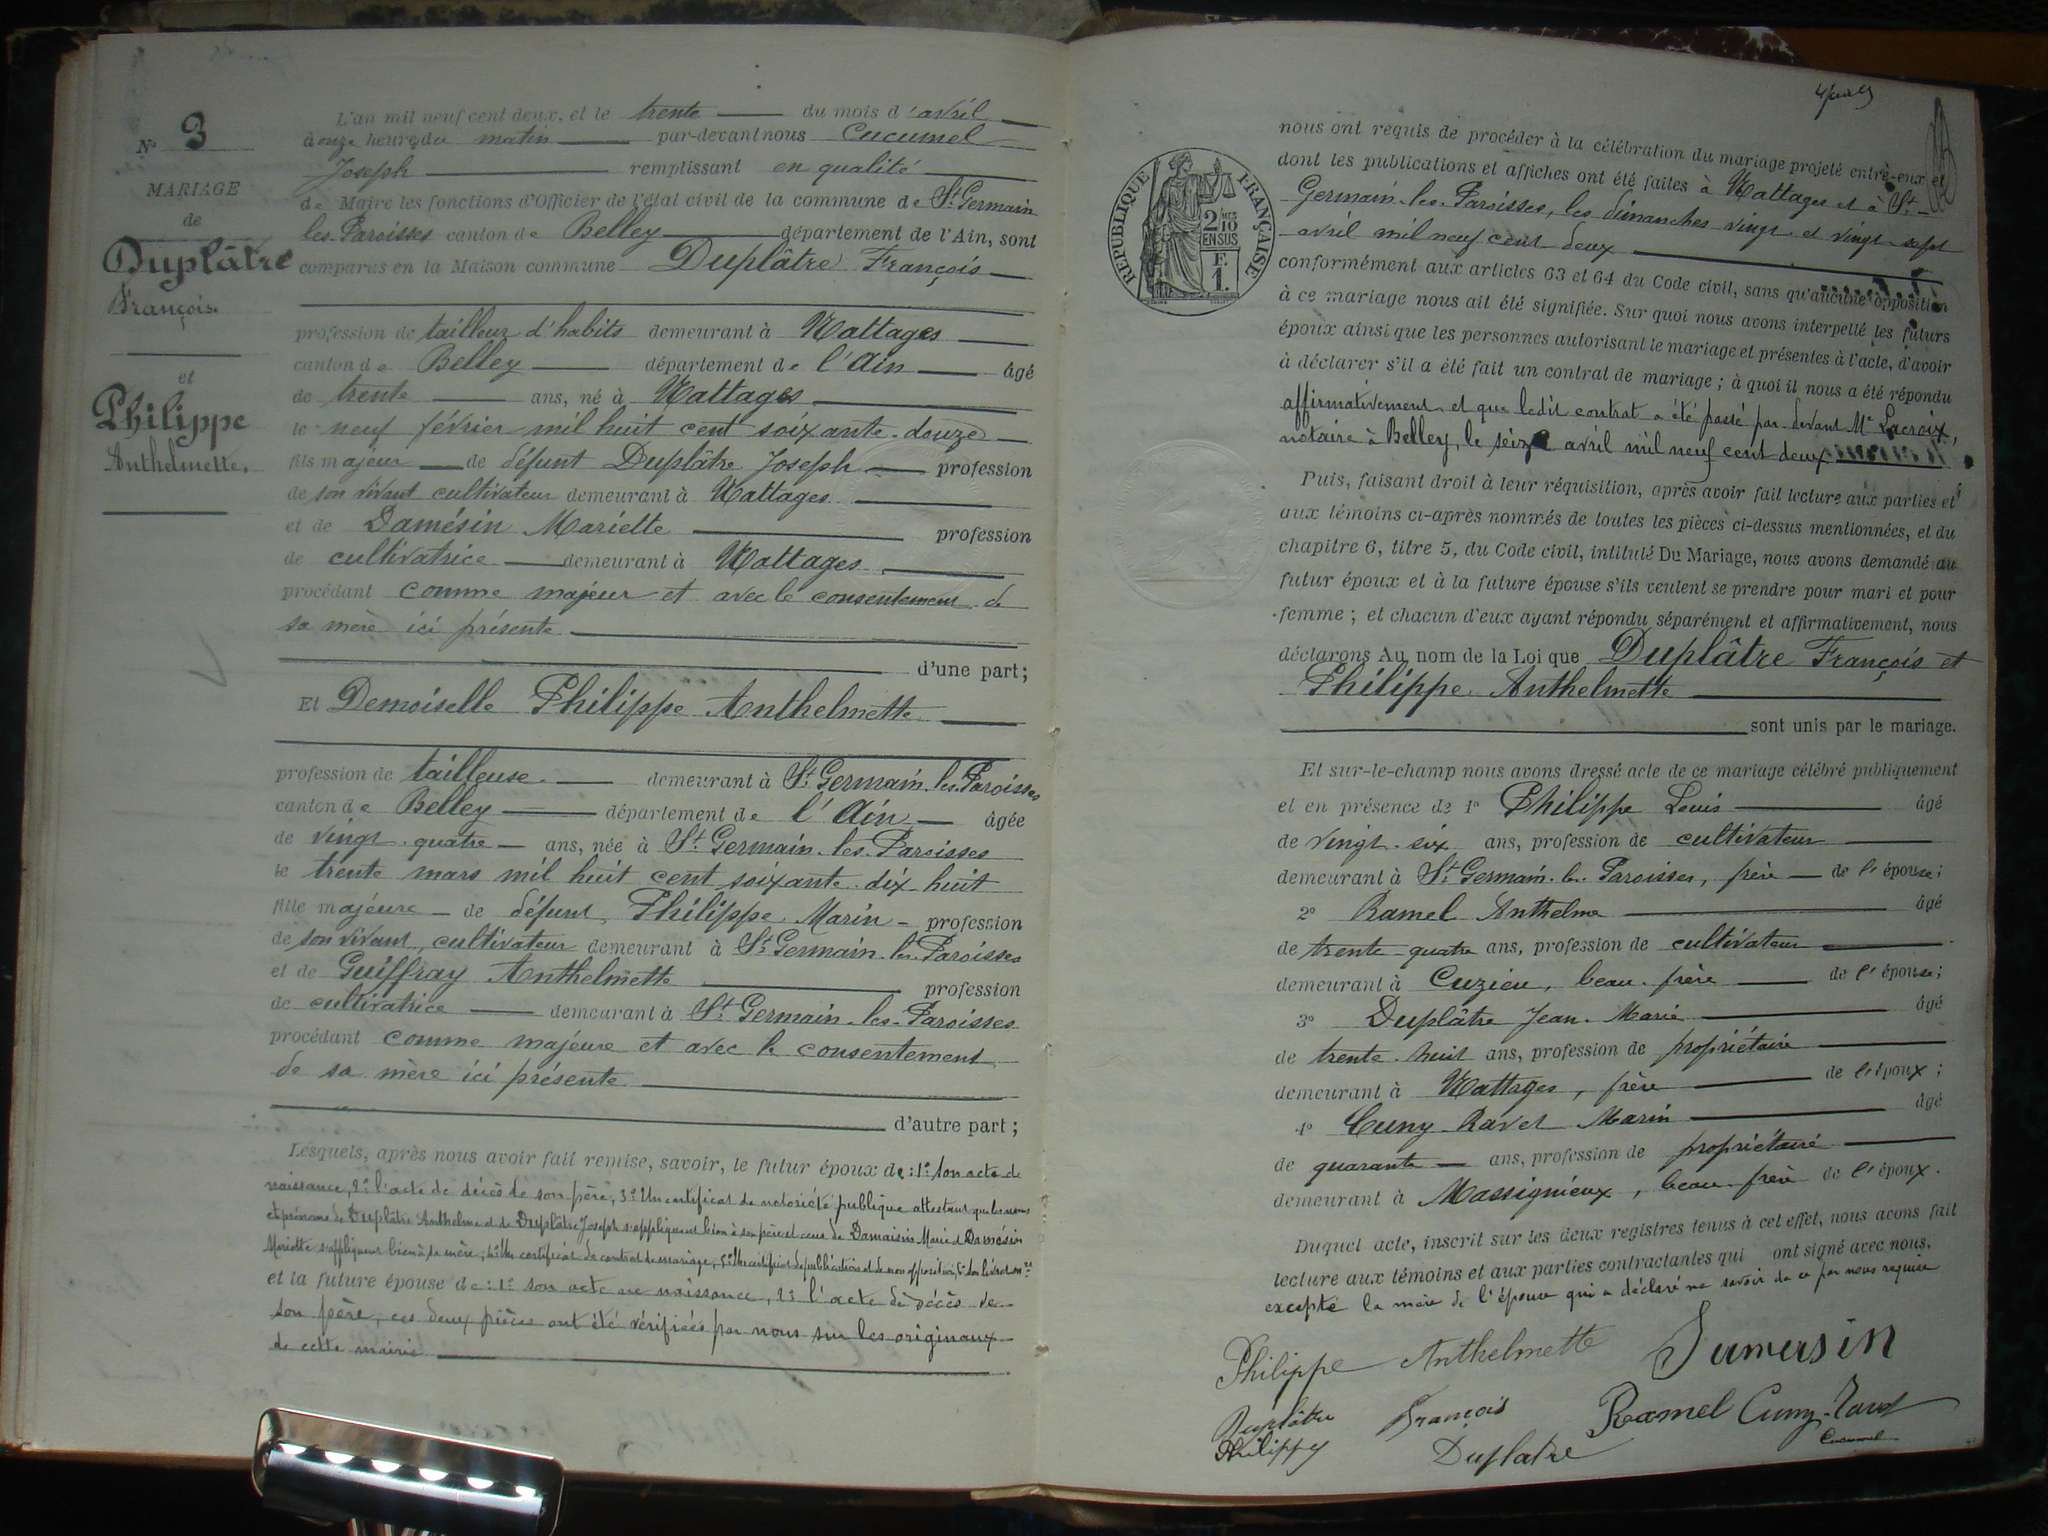 N° 3
MARIAGE
de
Duplâtre
François.
et
Philippe
Anthelmette.
L'an mil neuf cent deux, et le trente du mois d'avril
à onze heures du matin par-devant nous Cucumel
Joseph remplissant en qualité
de Maire les fonctions d'Officier de l'état civil de la commune de St Germain
les Paroisses canton de Belley département de l'Ain, sont
comparus en la Maison commune Duplâtre François
profession de tailleur d'habits demeurant à Nattages
canton de Belley département de l'Ain âgé
de trente ans, né à Nattages
le neuf février mil huit cent soixante-douze
fils majeur de défunt Duplâtre Joseph profession
de son vivant cultivateur demeurant à Nattages
et de Damésin Mariette profession
de cultivatrice demeurant à Nattages
procédant comme majeur et avec le consentement de
sa mère ici présente
d'une part;
Et Demoiselle Philippe Anthelmette
profession de tailleuse demeurant à St Germain-les-Paroisses
canton de Belley département de l'Ain âgée
de vingt-quatre ans, née à St Germain-les-Paroisses
le trente mars mil huit cent soixante-dix-huit
fille majeure de défunt Philippe Marin profession
de son vivant cultivateur demeurant à St Germain-les-Paroisses
et de Guiffray Anthelmette profession
de cultivatrice demeurant à St Germain-les-Paroisses
procédant comme majeure et avec le consentement
de sa mère ici présente
d'autre part;
Lesquels, après nous avoir fait remise, savoir, le futur époux de: 1° son acte de
naissance, 2° l'acte de décès de son père, 3° Un certificat de notoriété publique attestant que les noms
et prénoms de Duplâtre Anthelme et de Duplâtre Joseph s'appliquent bien à son père et ceux de Damaisin Marie et Damésin
Mariette s'appliquent bien à sa mère, 4° Un certificat de contrat de mariage, 5° Un certificat de publications et de non opposition, 6° Son livret
et la future épouse de: 1° son acte de naissance, 2° l'acte de décès de
son père, ces deux pièces ont été vérifiées par nous sur les originaux
de cette mairie
RÉPUBLIQUE FRANÇAISE
2 10
EN SUS
F.
1.
nous ont requis de procéder à la célébration du mariage projeté entre-eux et
dont les publications et affiches ont été faites à Nattages et à St-
Germain-les-Paroisses, les dimanches vingt et vingt-sept
avril mil neuf cent deux
conformément aux articles 63 et 64 du Code civil, sans qu'aucune opposition
à ce mariage nous ait été signifiée. Sur quoi nous avons interpellé les futurs
époux ainsi que les personnes autorisant le mariage et présentes à l'acte, d'avoir
à déclarer s'il a été fait un contrat de mariage; à quoi il nous a été répondu
affirmativement et que ledit contrat a été passé par devant Me Lacroix,
notaire à Belley, le seize avril mil neuf cent deux
Puis, faisant droit à leur réquisition, après avoir fait lecture aux parties et
aux témoins ci-après nommés de toutes les pièces ci-dessus mentionnées, et du
chapitre 6, titre 5, du Code civil, intitulé Du Mariage, nous avons demandé au
futur époux et à la future épouse s'ils veulent se prendre pour mari et pour
femme; et chacun d'eux ayant répondu séparément et affirmativement, nous
déclarons Au nom de la Loi que Duplâtre François et
Philippe Anthelmette
sont unis par le mariage.
Et sur-le-champ nous avons dressé acte de ce mariage célébré publiquement
et en présence de 1° Philippe Louis âgé
de vingt-six ans, profession de cultivateur
demeurant à St Germain-les-Paroisses, frère de l'épouse;
2° Ramel Anthelme âgé
de trente-quatre ans, profession de cultivateur
demeurant à Cuzieu, beau-frère de l'épouse;
3° Duplâtre Jean-Marie âgé
de trente-huit ans, profession de propriétaire
demeurant à Nattages, frère de l'époux;
4° Cuny-Ravet Marin âgé
de quarante ans, profession de propriétaire
demeurant à Massignieux, beau-frère de l'époux.
Duquel acte, inscrit sur les deux registres tenus à cet effet, nous avons fait
lecture aux témoins et aux parties contractantes qui ont signé avec nous,
excepté la mère de l'épouse qui a déclaré ne savoir de ce par nous requise
Philippe Anthelmette
Damasin
Duplâtre François
Ramel Cuny-Ravet
Philippe
Duplatre
Cucumel